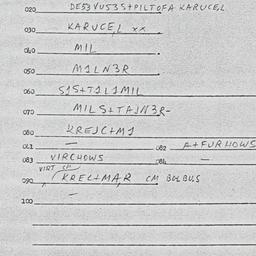 020 DE53VU53S+PILTOFA KARUCEL
030 KARUCEL xx
040 MIL
050 M1LN3R
060 S1S+T1L1MIL
070 MILS+TAJN3R-
080 KREJC+M1
081 — 082 A+FURHOWS
083 VIRCHOWS 084 —
090 KREC+MAR CM BULBUS
100 —